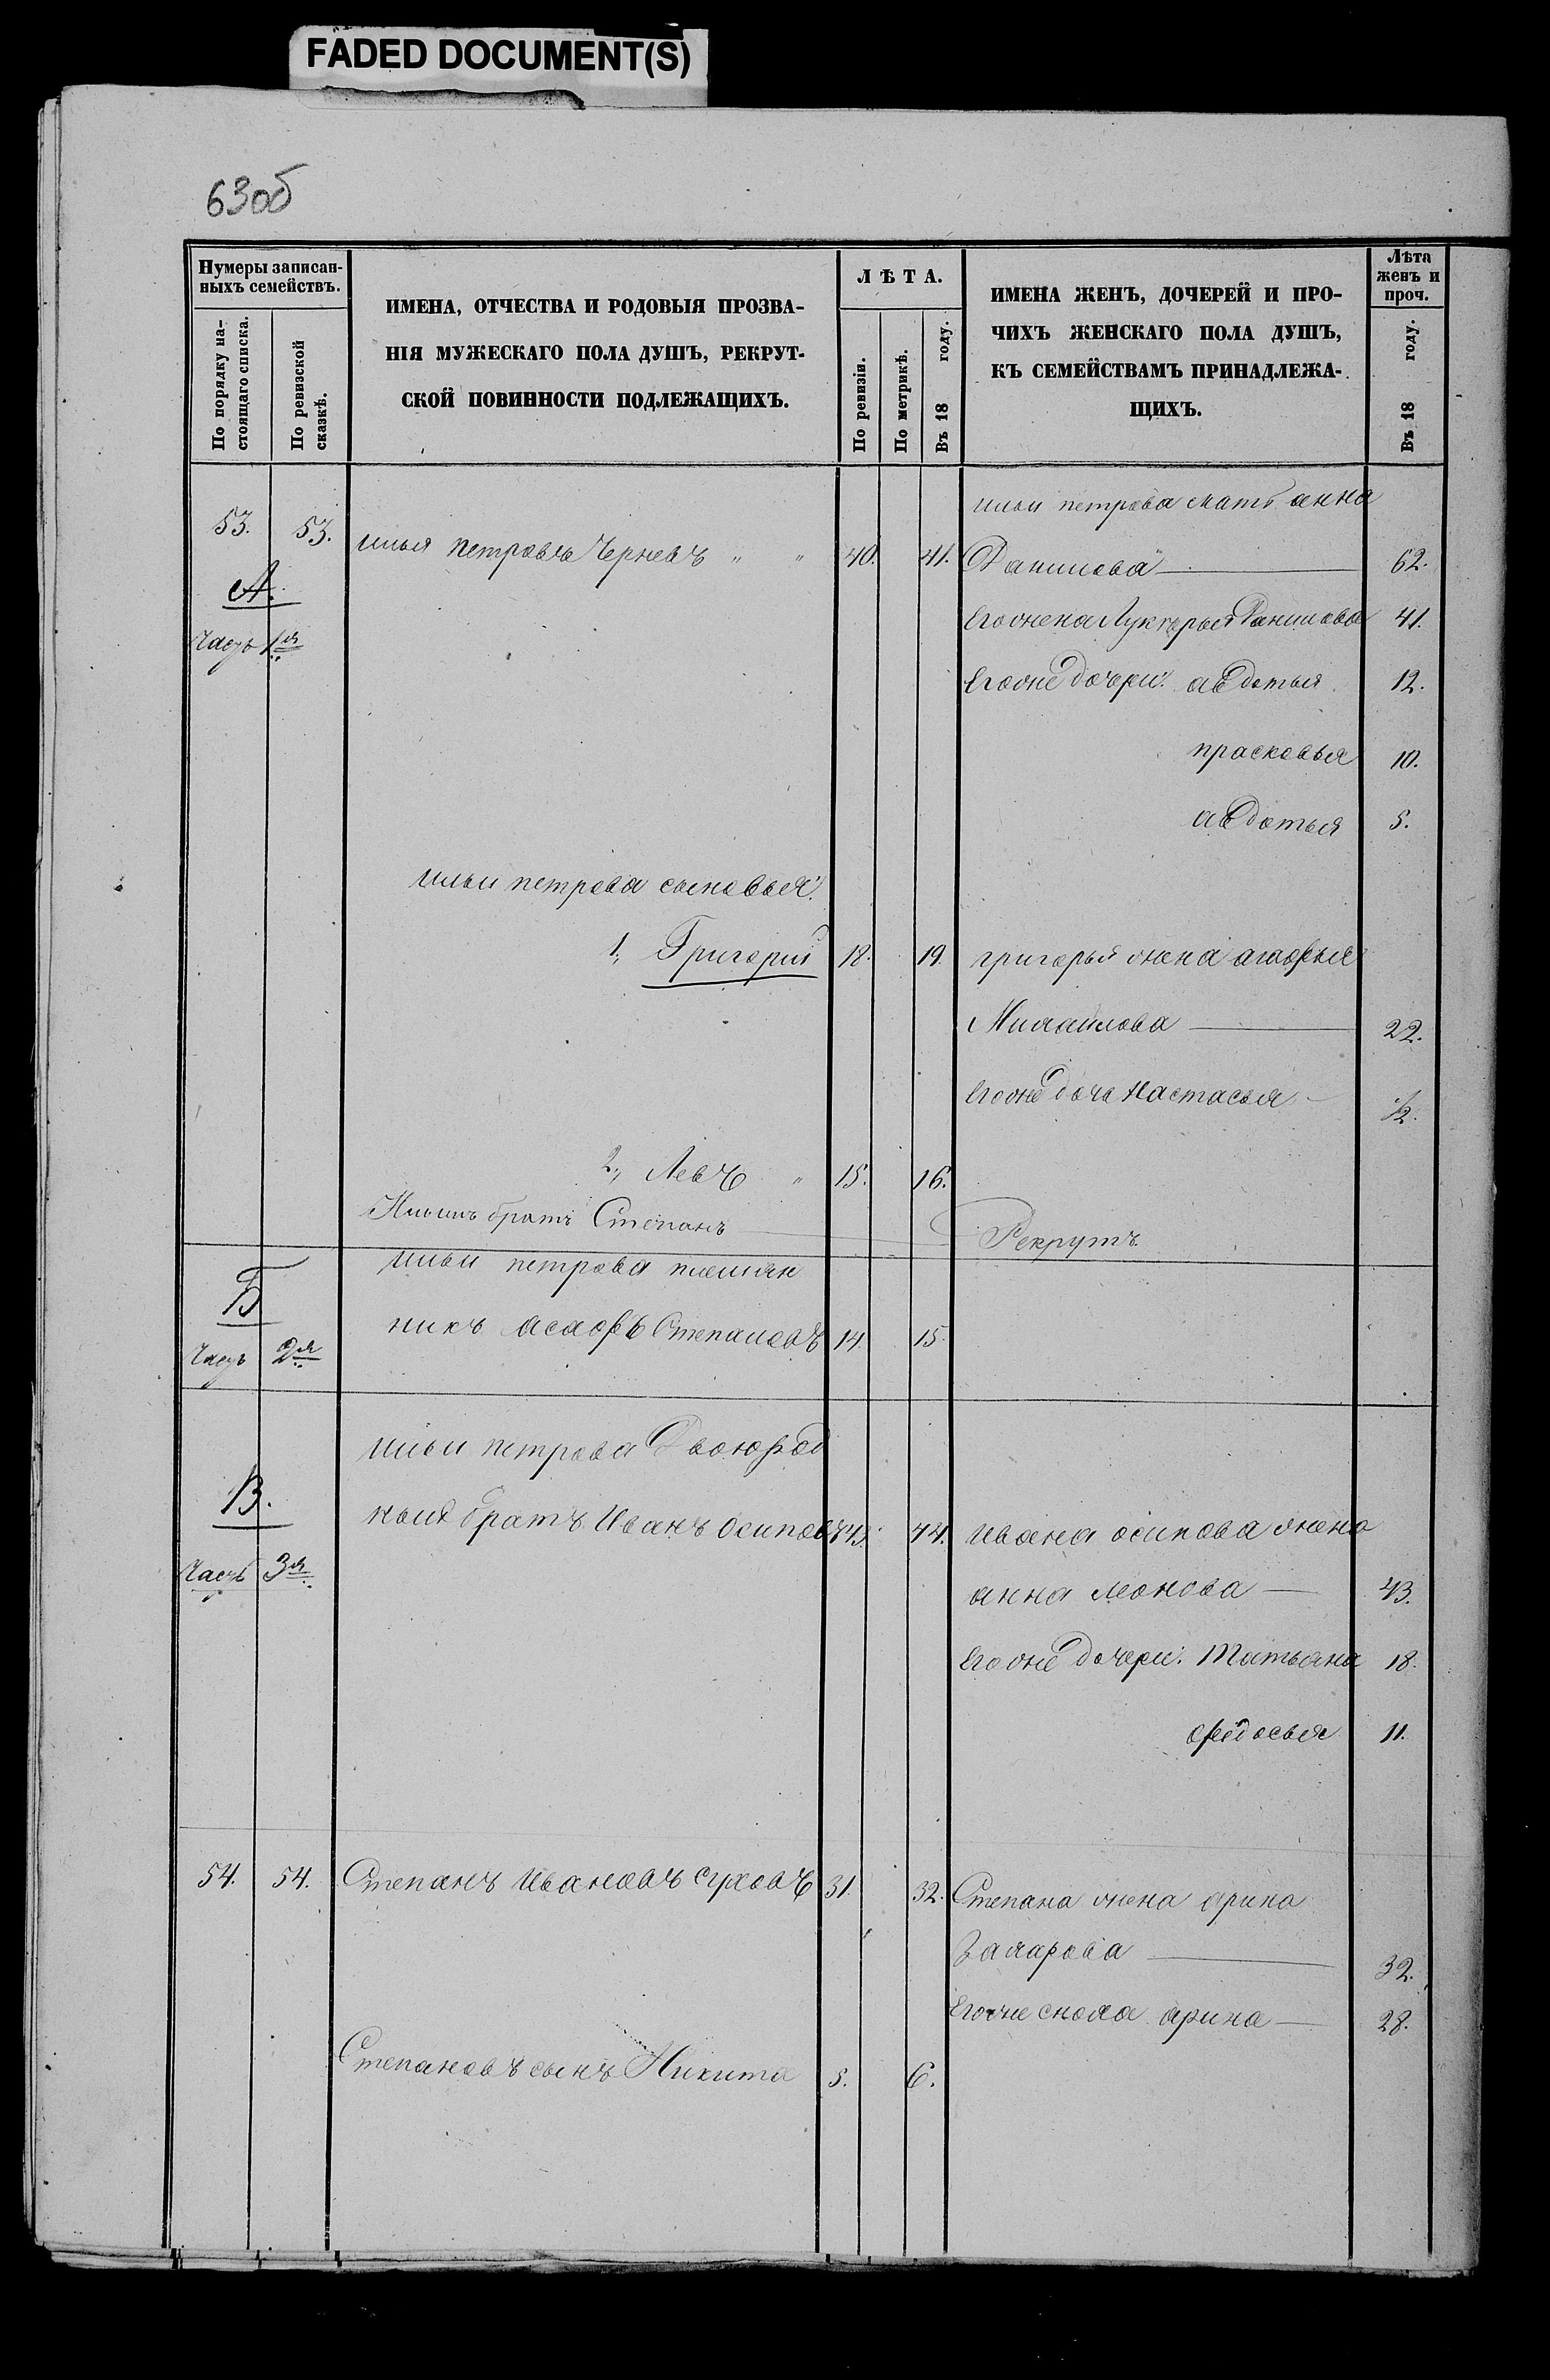 FADED DOCUMENT(S)
63об
Нумеры записан-
ныхъ семействъ.
По порядку на-
стоящаго списка.
По ревизской
сказкѣ.
ИМЕНА, ОТЧЕСТВА И РОДОВЫЯ ПРОЗВА-
НІЯ МУЖЕСКАГО ПОЛА ДУШЪ, РЕКРУТ-
СКОЙ ПОВИННОСТИ ПОДЛЕЖАЩИХЪ.
ЛѢТА.
По ревизіи.
По метрикѣ.
Въ 18 году.
ИМЕНА ЖЕНЪ, ДОЧЕРЕЙ И ПРО-
ЧИХЪ ЖЕНСКАГО ПОЛА ДУШЪ,
КЪ СЕМЕЙСТВАМЪ ПРИНАДЛЕЖА-
ЩИХЪ.
Лѣта
женъ и
проч.
Въ 18 году.
ильи петрова мать анна
53. 53. илья петровъ Черневъ " " 40. 41. Данилова 62.
А.
Часть 1я
Его жена Лукерья Данилова 41.
Его же дочери: авдотья 12.
прасковья 10.
авдотья 5.
ильи петрова сыновья:
1, Григорий 18. 19. григорья жена агафья
Михайлова 22.
Его же дочь Настасья 1/2.
2, Левъ " 15. 16.
Ильинъ братъ Степанъ Рекрутъ.
Б
Часть 2я
ильи петрова племян
никъ Степановъ 14. 15.
В.
Часть 3я
ильи петрова Двоюрод
ный братъ Иванъ осиповъ 43. 44. Ивана осипова жена
анна 43.
Его же дочери: Татьяна 18.
федосья 11.
54. 54. Степанъ Ивановъ суховъ 31. 32. Степана жена арина
Захарова 32.
Его же сноха арина 28.
Степановъ сынъ Никита 5. 6.